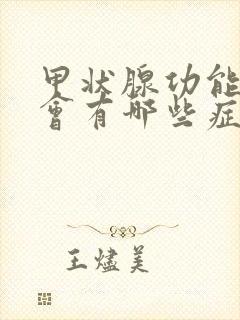 甲状腺功能
会有哪些症
王烬美